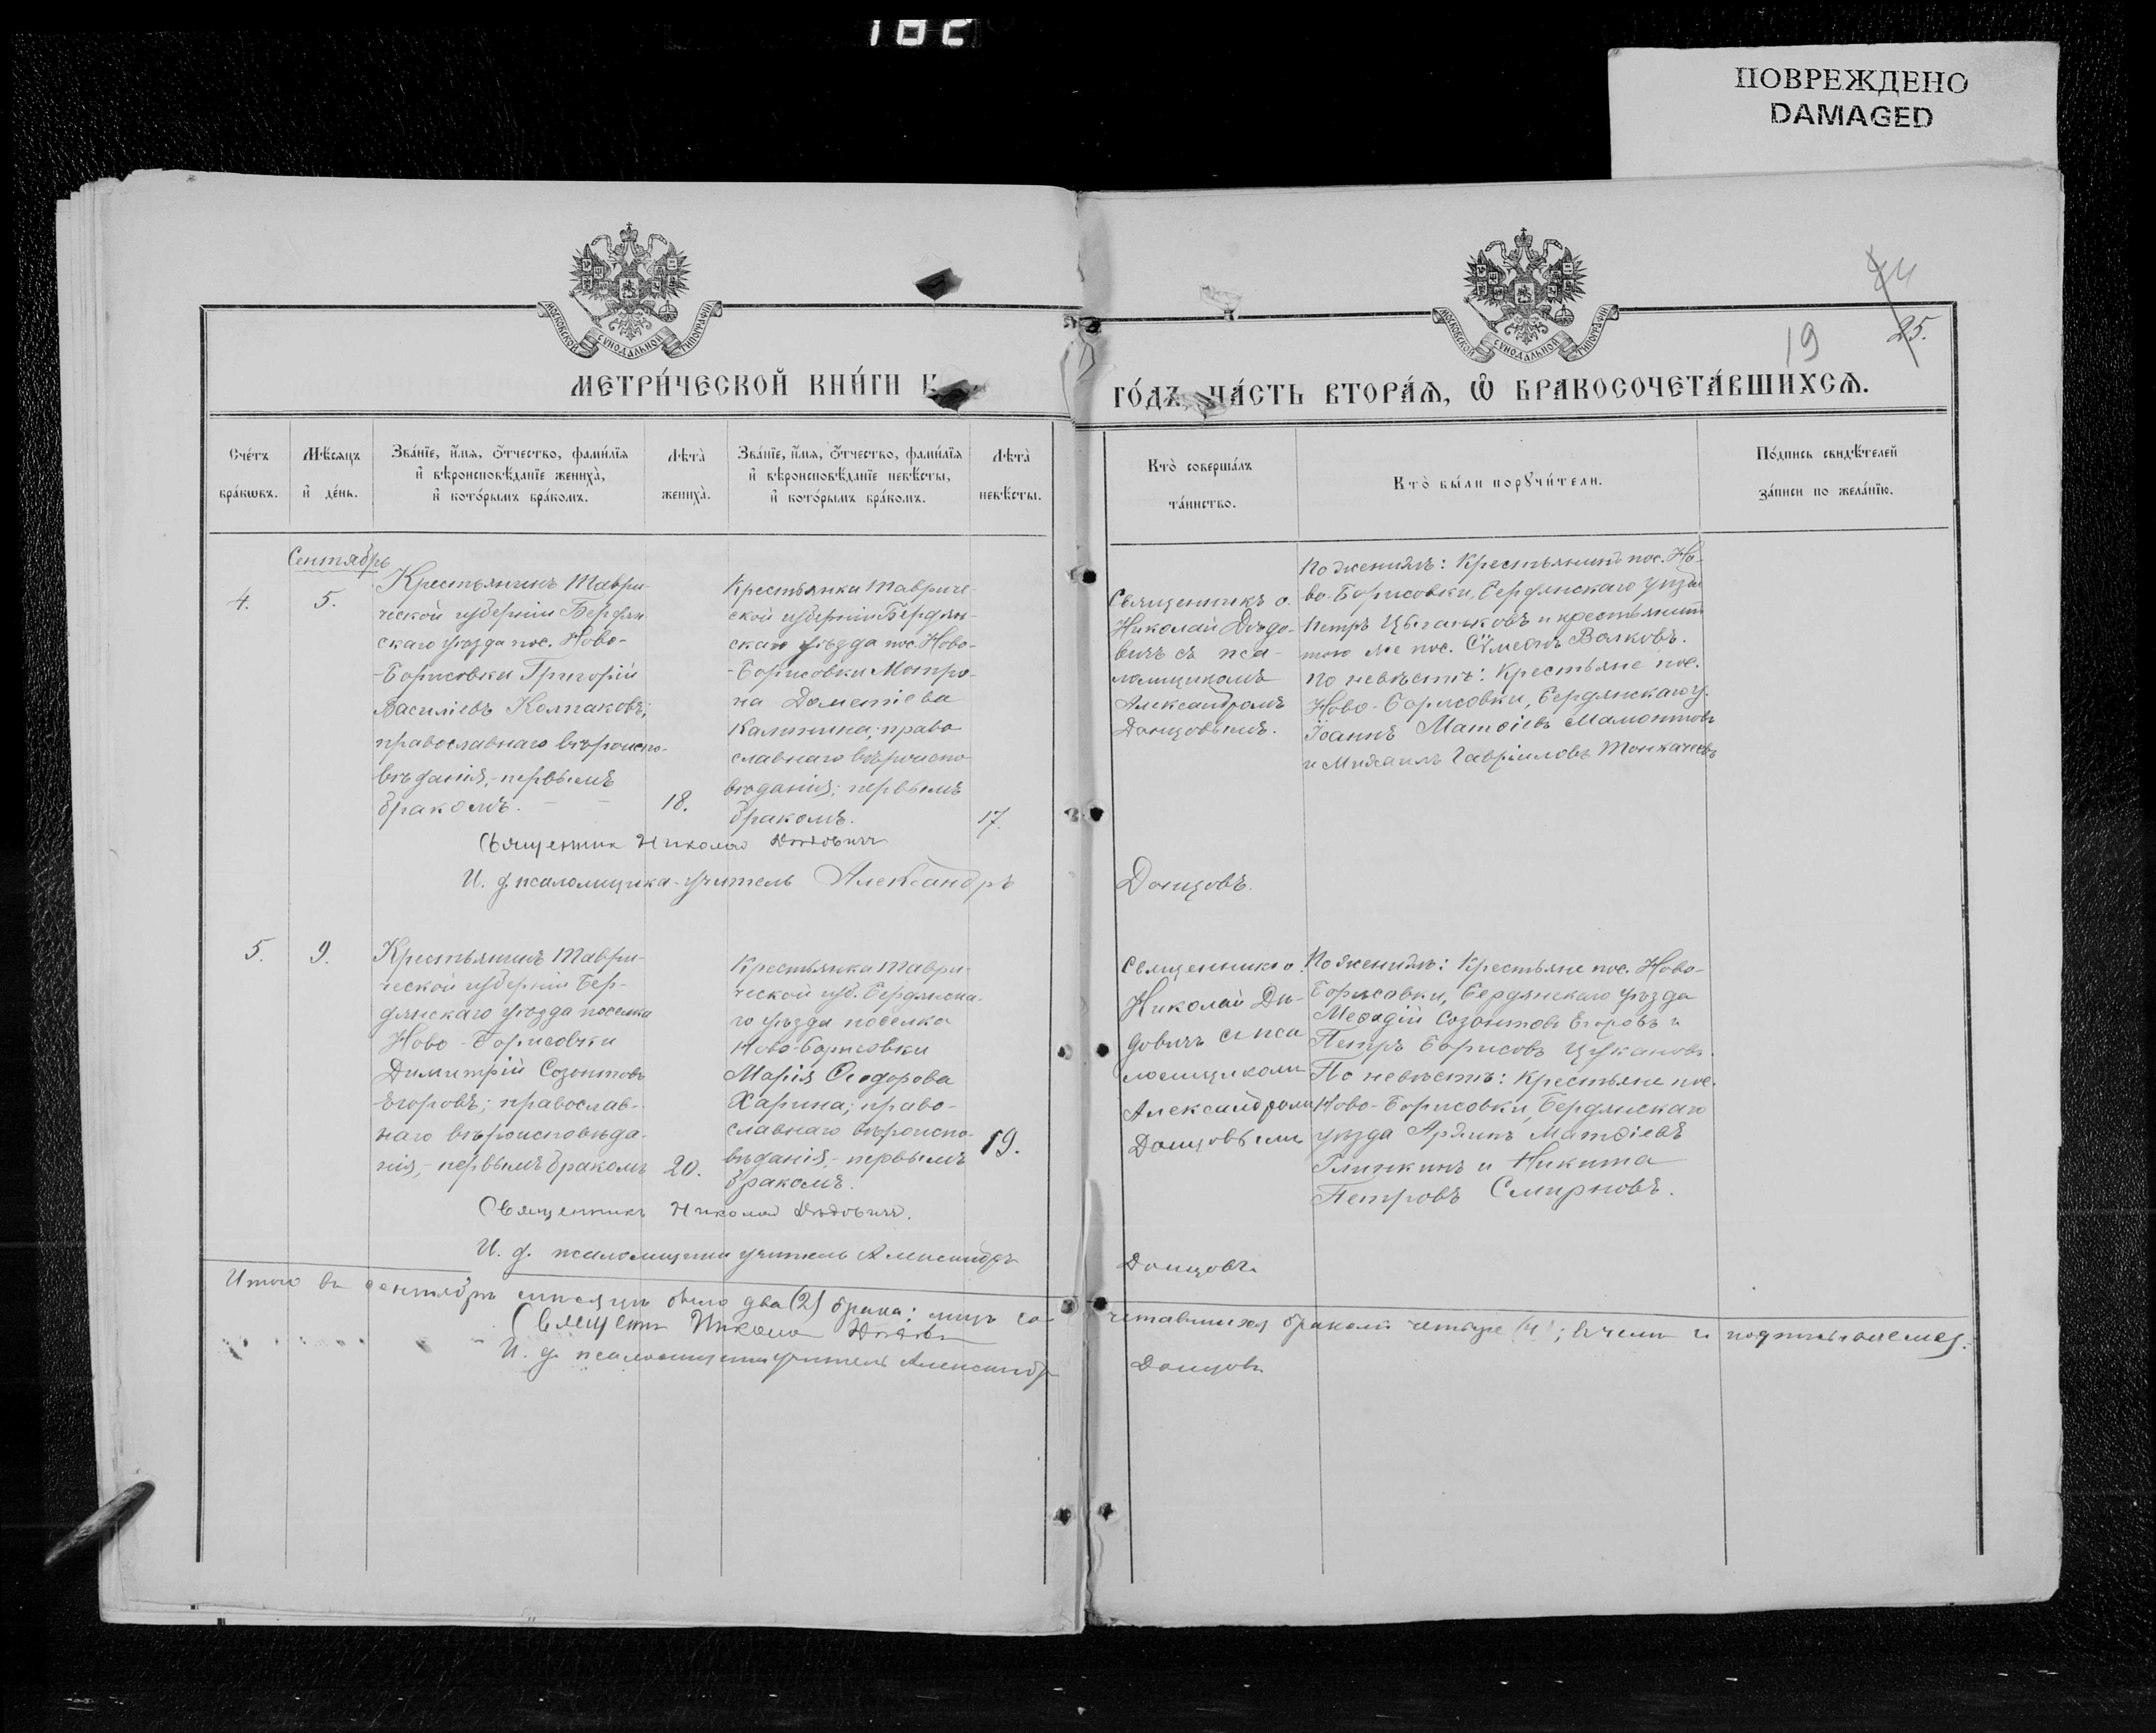 182
ПОВРЕЖДЕНО
DAMAGED
МОСКОВСКОЙ СѴНОДАЛЬНОЙ ТИПОГРАФІИ
МОСКОВСКОЙ СѴНОДАЛЬНОЙ ТИПОГРАФІИ
19
25.
МЕТРИ́ЧЕСКОЙ КНИ́ГИ
ГО́ДЪ, ЧА́СТЬ ВТОРА́Ѧ, Ѡ҆ БРАКОСОЧЕТА́ВШИХСѦ.
Сче́тъ
бра́кѡвъ.
Мѣ́сѧцъ
и҆ де́нь.
Зва́нїе, и҆́мѧ, о҆́тчество, фами́лїѧ
и҆ вѣроисповѣ́данїе жениха̀,
и҆ кото́рымъ бра́комъ.
Лѣта̀
жениха̀.
Зва́нїе, и҆́мѧ, о҆́тчество, фами́лїѧ
и҆ вѣроисповѣ́данїе невѣ́сты,
и҆ кото́рымъ бра́комъ.
Лѣта̀
невѣ́сты.
Кто̀ соверша́лъ
та́инство.
Кто̀ бы́ли порꙋчи́тели.
По́дпись свидѣ́телей
за́писи по жела́нїю.
Сентябрь
4.
5.
Крестьянинъ Таври-
ческой губерніи Бердян
скаго уѣзда пос. Ново-
-Борисовки Григорій
Василіевъ Колпаковъ;
православнаго вѣроиспо-
вѣданія,- первымъ
бракомъ.
18.
Крестьянка Тавриче-
ской губерніи Бердян-
скаго уѣзда пос. Ново-
-Борисовки Матро-
на Дометіева
Калинина; право
славнаго вѣроиспо-
вѣданія; первымъ
бракомъ.
17.
Священникъ о.
Николай Дѣдо-
вичъ съ пса-
ломщикомъ
Александромъ
Донцовымъ.
По женихѣ: Крестьянинъ пос. Но-
во-Борисовки, Бердянскаго уѣзда
Петръ Цыганковъ и крестьянинъ
того же пос. Сѵмеонъ Волковъ.
По невѣстѣ: Крестьяне пос.
Ново-Борисовки, Бердянскаго у.
Іоаннъ Матѳіевъ Мамонтовъ
и Михаилъ Гавріиловъ Толкачевъ
Священникъ Николай Дѣдовичъ
И. д. псаломщика-учитель Александръ
Донцовъ.
5.
9.
Крестьянинъ Таври-
ческой губерніи Бер-
дянскаго уѣзда поселка
Ново-Борисовки
Димитрій Созонтовъ
Егоровъ; православ-
наго вѣроисповѣда-
нія,- первымъ бракомъ
20.
Крестьянка Таври-
ческой губ. Бердянска-
го уѣзда поселка
Ново-Борисовки
Марія Ѳеодорова
Харина; право-
славнаго вѣроиспо-
вѣданія,- первымъ
бракомъ.
19.
Священникъ о.
Николай Дѣ-
довичъ съ пса
ломщикомъ
Александромъ
Донцовымъ
По женихѣ: Крестьяне пос. Ново-
Борисовки, Бердянскаго уѣзда
Меѳодій Созонтовъ Егоровъ и
Петръ Борисовъ Цукановъ.
По невѣстѣ: Крестьяне пос.
Ново-Борисовки, Бердянскаго
уѣзда Матѳіевъ
Глинкинъ и Никита
Петровъ Смирновъ.
Священникъ Николай Дѣдовичъ.
И. д. псаломщика учитель Александръ
Донцовъ
Итого въ сентябрѣ мѣсяцѣ было два (2) брака: лицъ со-
четавшихся бракомъ четыре (4); въ чемъ и подписываемся.
Священникъ Николай Дѣдовичъ
И. д. псаломщика учитель Александръ
Донцовъ